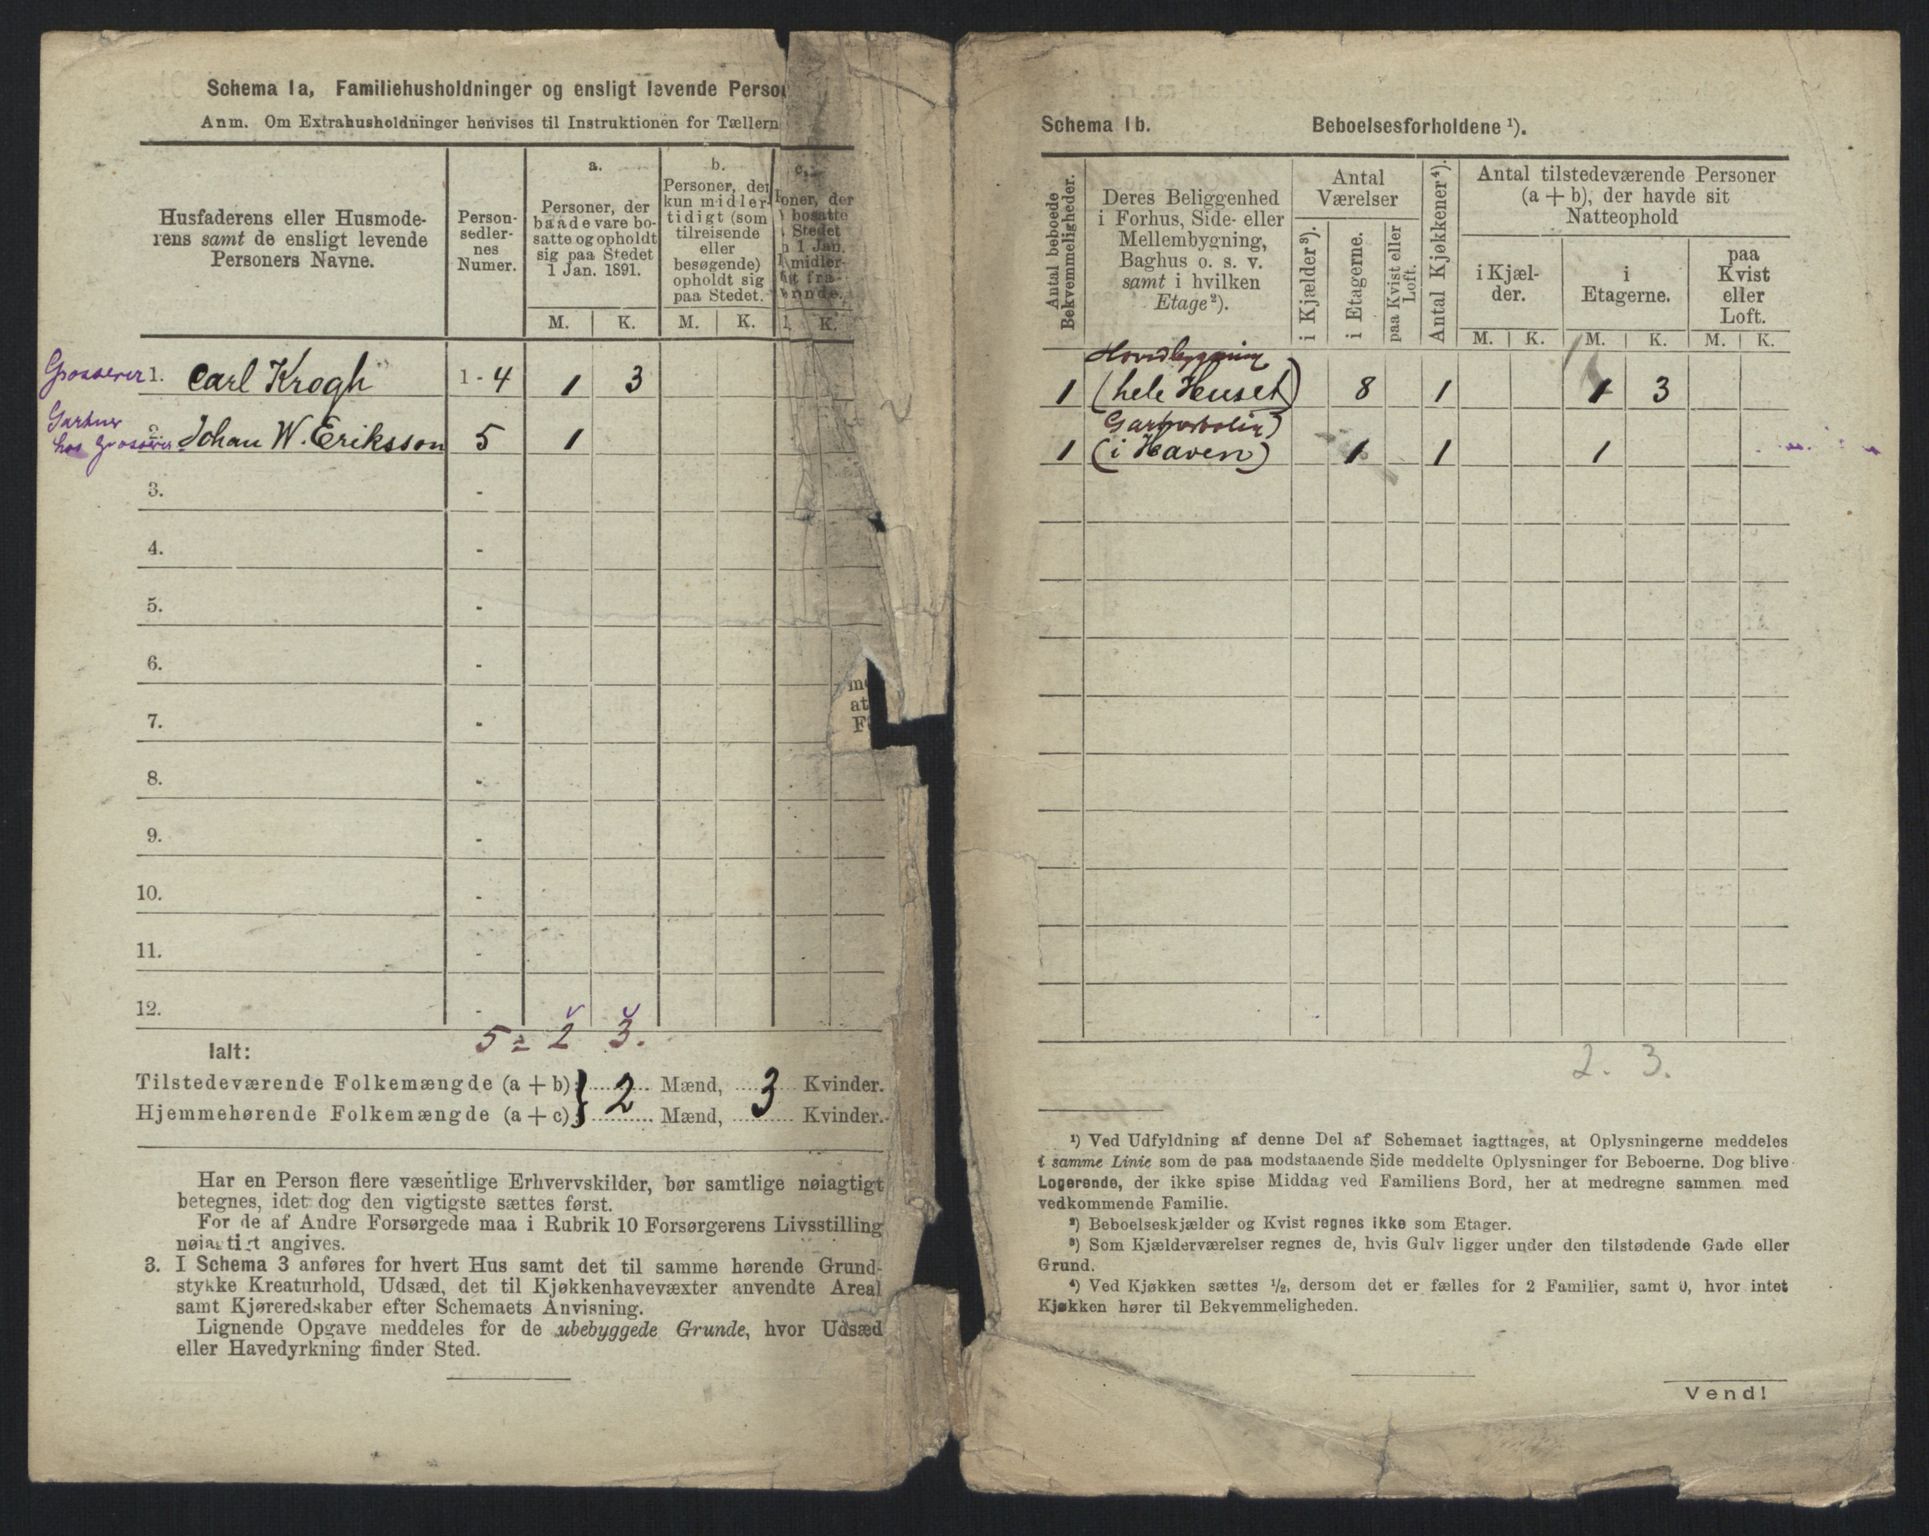 Schema 1a, Familiehusholdninger og ensligt levende Perso
Anm. Om Extrahusholdninger henvises til Instruktionen for Tællern
Husfaderens eller Husmode-
rens samt de ensligt levende
Personers Navne.
Person-
sedler-
nes
Numer.
a.
Personer, der
baade vare bo-
satte og opholdt
sig paa Stedet
1 Jan. 1891.
b.
Personer, der
kun midler-
tidigt (som
tilreisende
eller
besøgende)
opholdt sig
paa Stedet.
c.
oner, der
bosatte
Stedet
1 Jan.
midler-
fra-
M. K. M. K. K.
Grosserer 1. Carl Krogh 1 - 4 1 3
Gartner
hos Grosserer Johan W. Eriksson 5 1
3. -
4. -
5. -
6. -
7. -
8. -
9. -
10. -
11. -
12. -
5 = 2 3.
Ialt:
Tilstedeværende Folkemængde (a + b) } 2 Mænd, 3 Kvinder.
Hjemmehørende Folkemængde (a + c) Mænd, Kvinder.
me
at
F
Har en Person flere væsentlige Erhvervskilder, bør samtlige nøiagtigt
betegnes, idet dog den vigtigste sættes først.
For de af Andre Forsørgede maa i Rubrik 10 Forsørgerens Livsstilling
nøiagtigt angives.
3. I Schema 3 anføres for hvert Hus samt det til samme hørende Grund-
stykke Kreaturhold, Udsæd, det til Kjøkkenhavevæxter anvendte Areal
samt Kjøreredskaber efter Schemaets Anvisning.
Lignende Opgave meddeles for de ubebyggede Grunde, hvor Udsæd
eller Havedyrkning finder Sted.
Schema 1b. Beboelsesforholdene ¹).
Antal beboede
Bekvemmeligheder.
Deres Beliggenhed
i Forhus, Side- eller
Mellembygning,
Baghus o. s. v.
samt i hvilken
Etage²).
Antal
Værelser
i Kjælder³).
i Etagerne.
paa Kvist eller
Loft.
Antal Kjøkkener⁴).
Antal tilstedeværende Personer
(a + b), der havde sit
Natteophold
i Kjæl-
der.
i
Etagerne.
paa
Kvist
eller
Loft.
M. K. M. K. M. K.
Hovedbygning
1 (hele Huset) 8 1 1 3
Gartnerbolig
1 (i Haven) 1 1 1
2. 3.
¹) Ved Udfyldning af denne Del af Schemaet iagttages, at Oplysningerne meddeles
i samme Linie som de paa modstaaende Side meddelte Oplysninger for Beboerne. Dog blive
Logerende, der ikke spise Middag ved Familiens Bord, her at medregne sammen med
vedkommende Familie.
²) Beboelseskjælder og Kvist regnes ikke som Etager.
³) Som Kjælderværelser regnes de, hvis Gulv ligger under den tilstødende Gade eller
Grund.
⁴) Ved Kjøkken sættes ½, dersom det er fælles for 2 Familier, samt 0, hvor intet
Kjøkken hører til Bekvemmeligheden.
Vend!